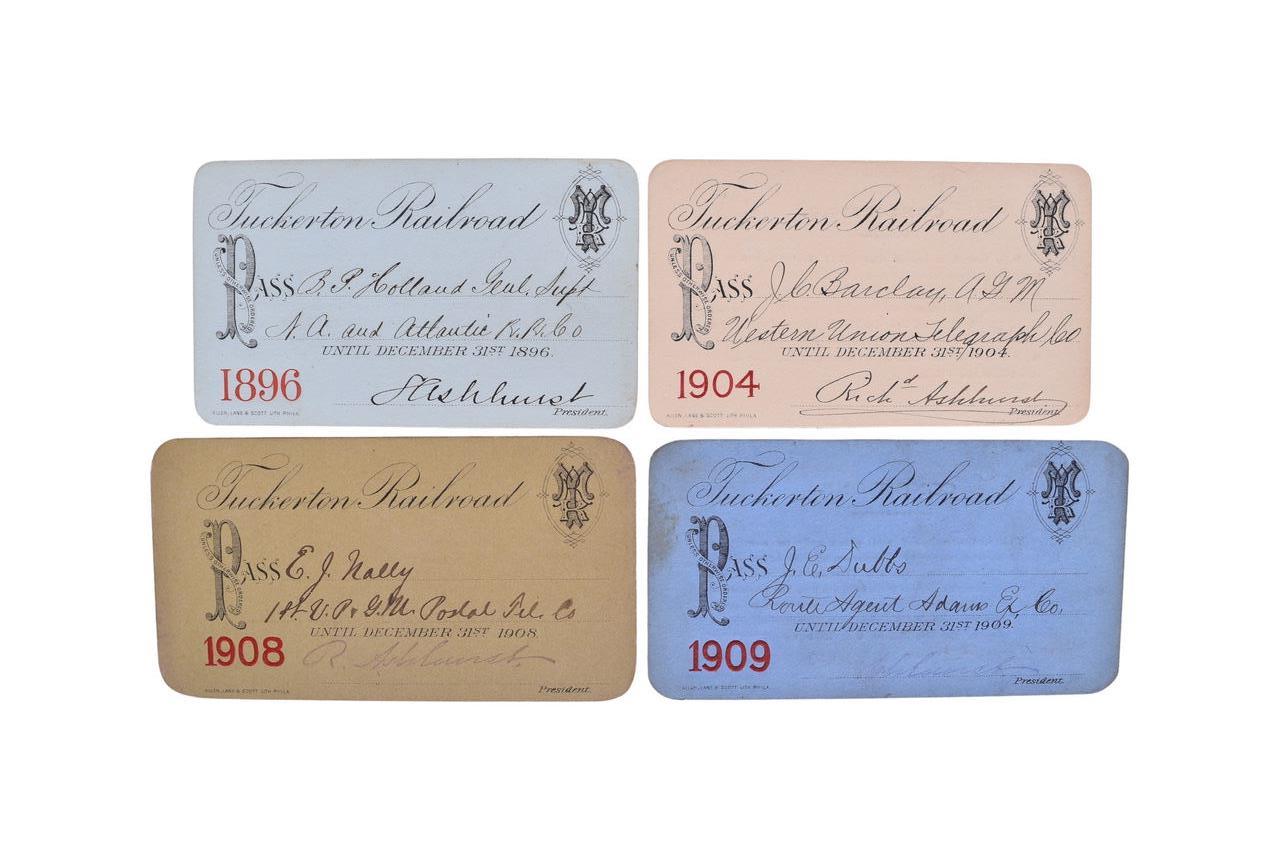 Tuckerton Railroad
TRR
PASS B. P. Holland Genl. Supt
UNLESS OTHERWISE ORDERED
N. A. and Atlantic R. R. Co
UNTIL DECEMBER 31ST 1896.
1896
Ashhurst
President.
ALLEN, LANE & SCOTT LITH PHILA.
Tuckerton Railroad
TRR
PASS J. C. Barclay, A G M
UNLESS OTHERWISE ORDERED
Western Union Telegraph Co
UNTIL DECEMBER 31ST 1904.
1904
Richd Ashhurst
President.
ALLEN, LANE & SCOTT LITH PHILA.
Tuckerton Railroad
TRR
PASS E. J. Nally
UNLESS OTHERWISE ORDERED
1st. V. P. & G. M. Postal Tel. Co
UNTIL DECEMBER 31ST 1908.
1908
R. Ashhurst
President.
ALLEN, LANE & SCOTT LITH PHILA.
Tuckerton Railroad
TRR
PASS J. E. Dubbs
UNLESS OTHERWISE ORDERED
Route Agent Adams Ex. Co.
UNTIL DECEMBER 31ST 1909.
1909
Ashhurst
President.
ALLEN, LANE & SCOTT LITH PHILA.